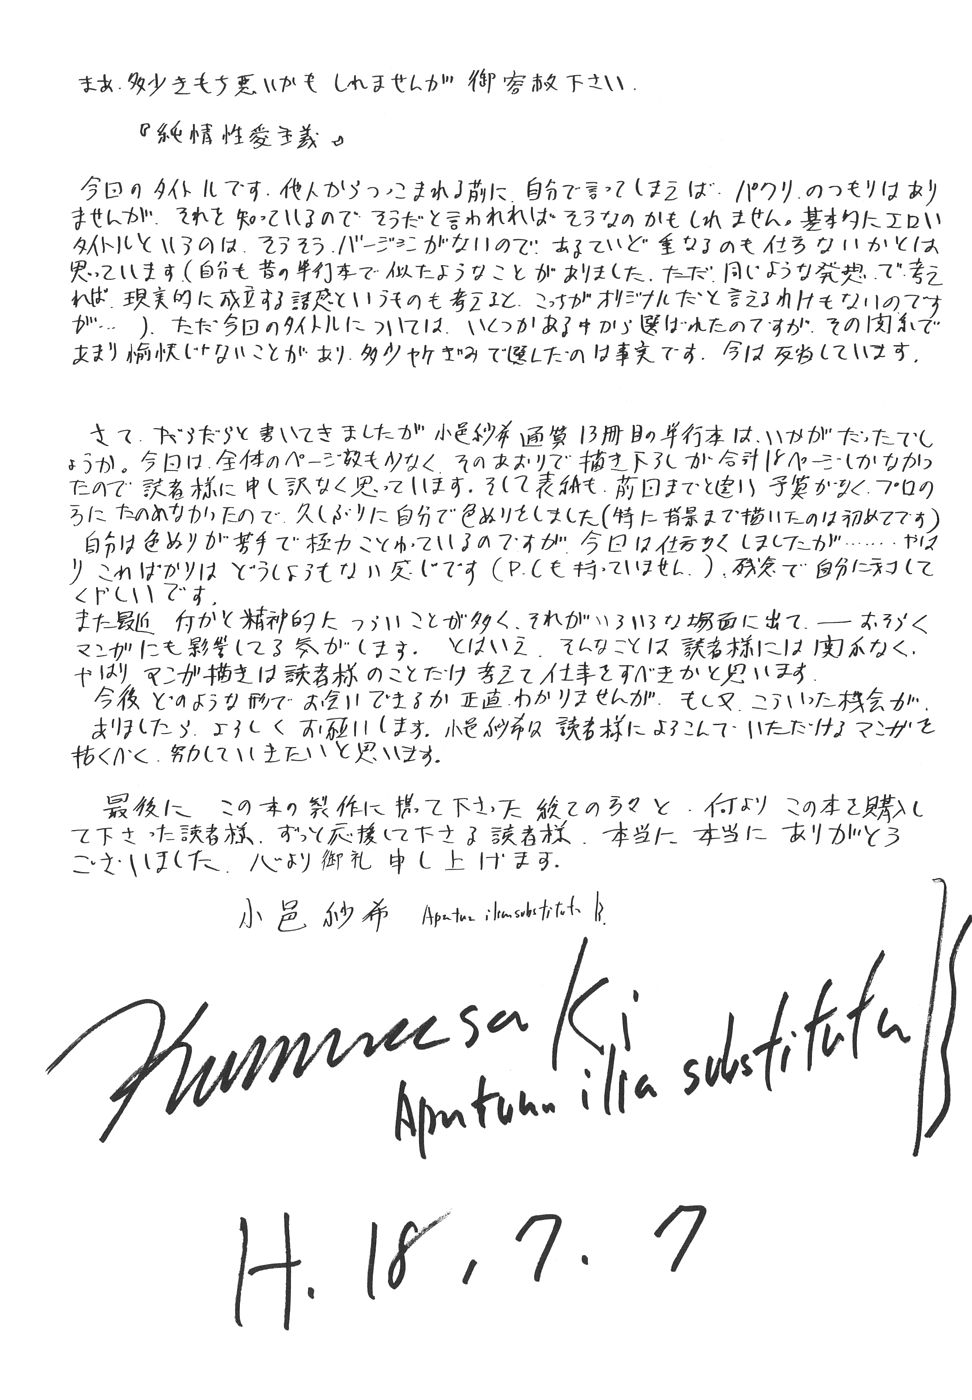 まあ、多少きもち悪いかもしれませんが御容赦下さい。
『純情性愛主義』
今回のタイトルです。他人からつっこまれる前に、自分で言ってしまえば、パクリ、のつもりはあり
ませんが、それを知っているのでそうだと言われればそうなのかもしれません。基本的にエロい
タイトルというのは、そうそうバージョンがないので、あるていど重なるのも仕方ないかとは
思っています(自分も昔の単行本で似たようなことがありました、ただ、同じような発想、で考え
れば、現実的に成立する誘惑というものも考えると、こっちがオリジナルだと言えるわけもないのです
が…)、ただ今回のタイトルについては、いくつかある中から選ばれたのですが、その関係で
あまり愉快じゃないことがあり、多少ヤケぎみで選んだのは事実です。今は反省しています。
さて、だらだらと書いてきましたが小邑紗希通算13冊目の単行本は、いかがだったでし
ょうか。今回は、全体のページ数も少なく、そのあおりで描き下ろしが合計18ページしかなかっ
たので読者様に申し訳なく思っています。そして表紙も、前回までと違い予算がなく、プロの
方にたのめなかったので、久しぶりに自分で色ぬりをしました(特に背景まで描いたのは初めてです)
自分は色ぬりが苦手で極力ことわっているのですが、今回は仕方なくしましたが……やは
りこればかりはどうしようもない感じです(P.Cも持っていません。)、残念で自分に対して
くやしいです。
また最近何かと精神的につらいことが多く、それがいろいろな場面に出て、―おそらく
マンガにも影響してる気がします。とはいえ、そんなことは読者様には関係なく、
やはりマンガ描きは読者様のことだけ考えて仕事をすべきかと思います。
今後どのような形でお会いできるか正直わかりませんが、もし又、こういった機会が
ありましたら、よろしくお願いします。小邑紗希は読者様によろこんでいただけるマンガを
描くべく、努力していきたいと思います。
最後にこの本の製作に携って下さった総ての方々と、何よりこの本を購入し
て下さった読者様、ずっと応援して下さる読者様、本当に本当にありがとう
ございました、心より御礼申し上げます。
小邑紗希 Apatura ilia substituta B.
KumurasaKi
Apatura ilia substituta B
H. 18, 7. 7